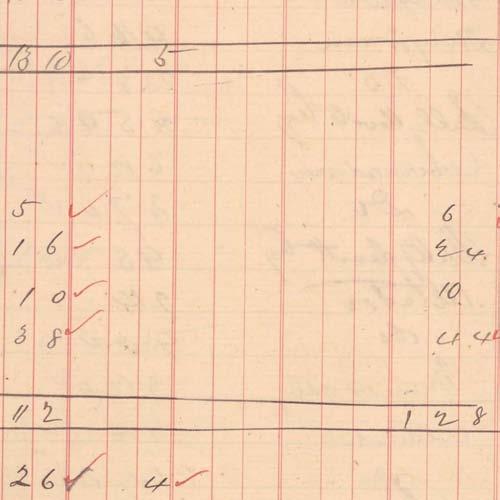 13 10 5
5 ✓ 6
1 6 ✓ 2 4
1 0 ✓ 10
3 8 ✓ 4 4
11 2 1 2 8
2 6 ✓ 4 ✓